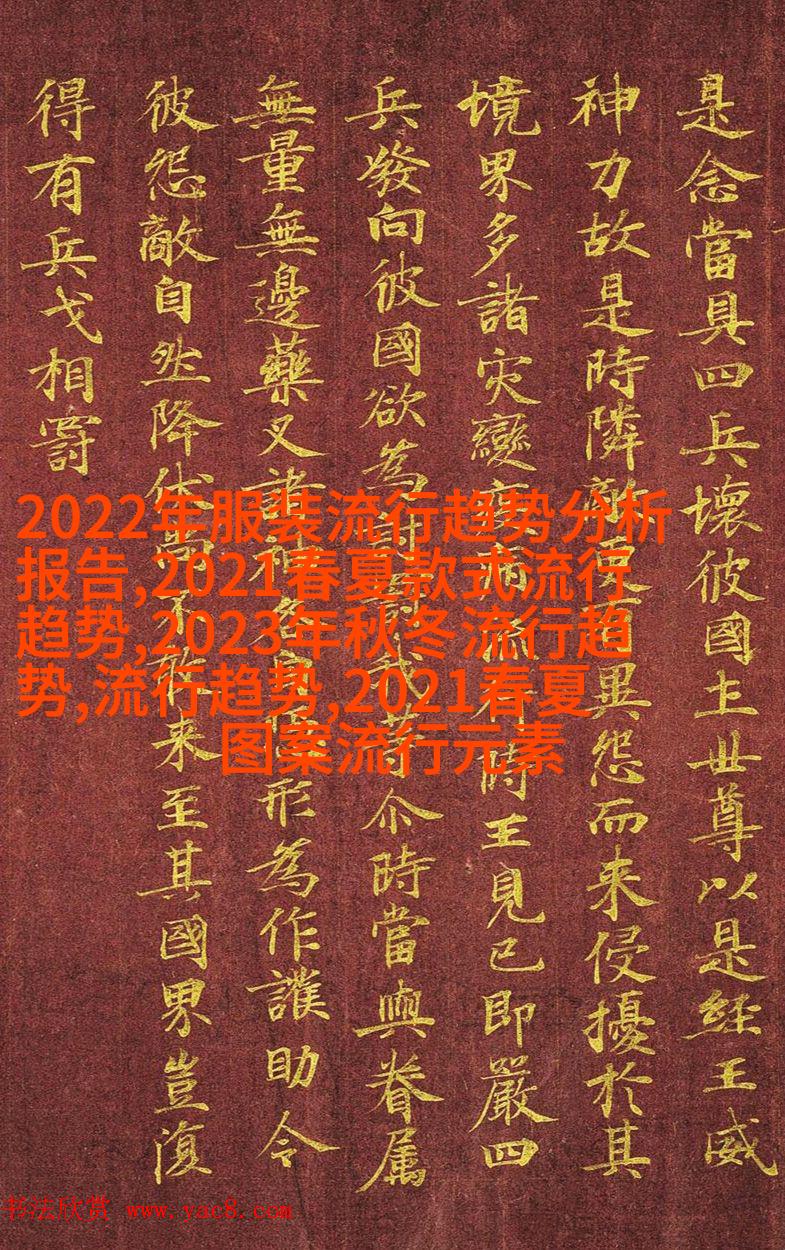 是念當具四兵壞彼國土世尊以是經王威
神力故是時隣敵更有異怨而来侵擾於其
境界多諸灾變疫病流行時王見已即嚴四
兵發向彼國欲為討罰我等尒時當與眷属
無量無邊藥叉諸神各自隱形為作護助令
彼怨敵自然降伏尚不敢来至其國界豈復
得有兵戈相罰
2022年服装流行趋势分析
报告,2021春夏款式流行
趋势,2023年秋冬流行趋
势,流行趋势,2021春夏
图案流行元素
书法欣赏 www.yac8.com